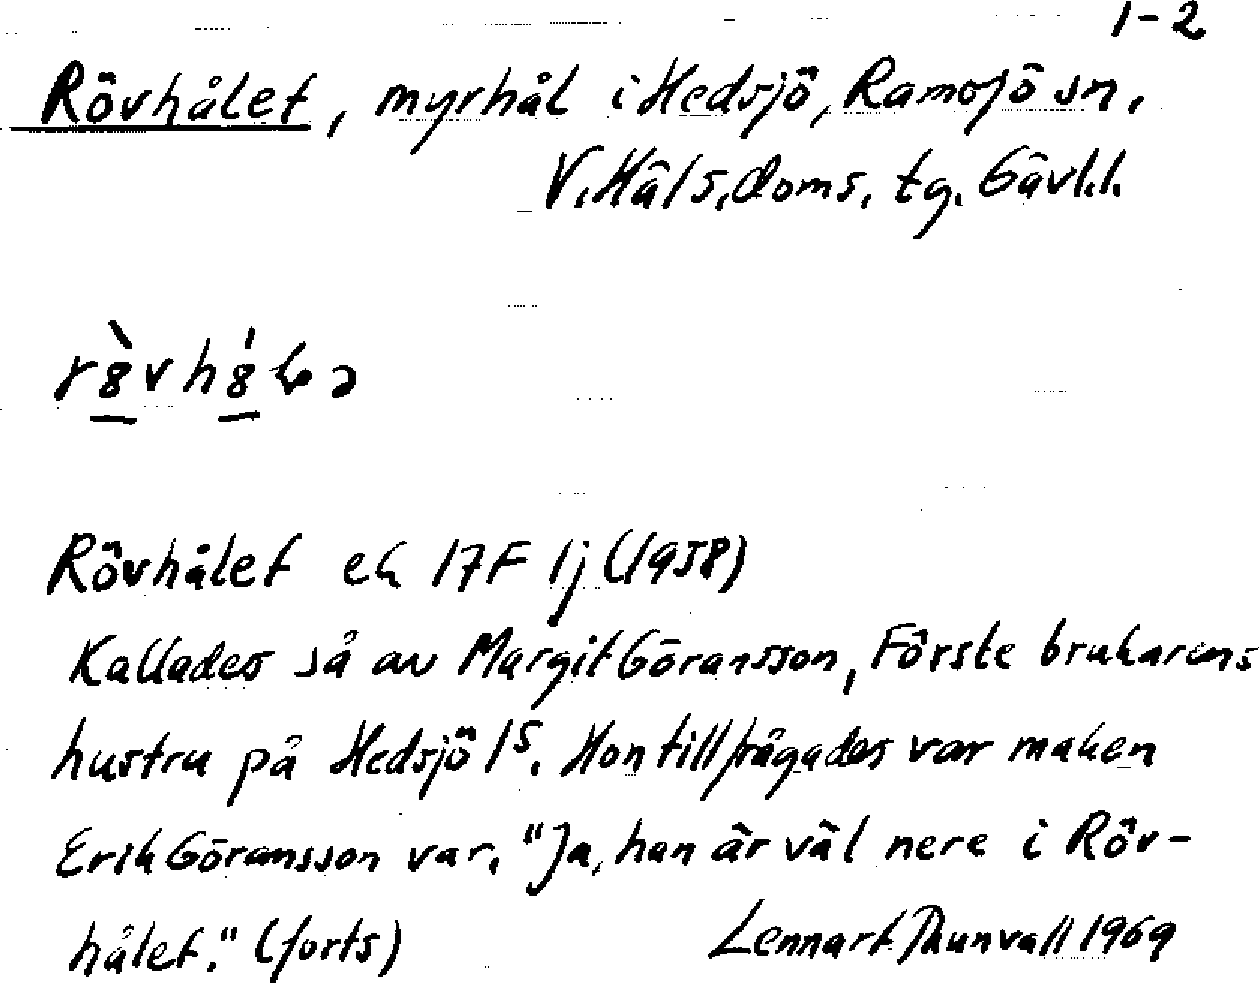 1-2
Rövhålet, myrhål i Hedsjö, Ramsjö sn,
V. Häls. doms. tg. Gävl.l.
Rövhålet ek 17F 1j (1958)
Kallades så av Margit Göransson, Förste brukarens
hustru på Hedsjö 1⁵. Hon tillfrågades var maken
Erik Göransson var. "Ja, han är väl nere i Röv-
hålet." (forts)
Lennart Thunvall 1969